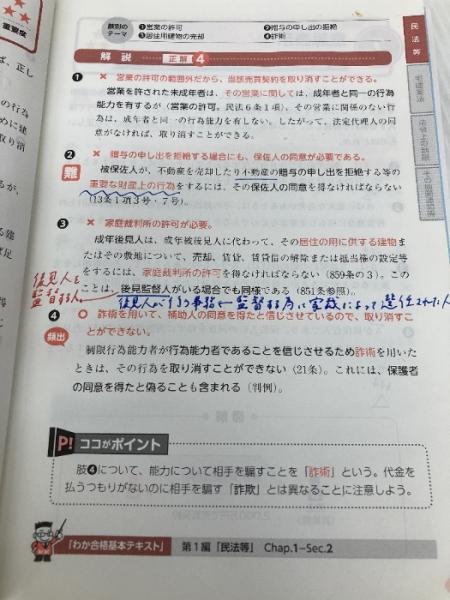 重要度
肢別の
テーマ
❶営業の許可
❷贈与の申し出の拒絶
❸居住用建物の売却
❹詐術
民法等
解説 正解 4
❶ × 営業の許可の範囲外だから、当該売買契約を取り消すことができる。
営業を許された未成年者は、その営業に関しては、成年者と同一の行為
能力を有するが（営業の許可。民法6条1項）、その営業に関係のない行
為は、成年者と同一の行為能力を有しない。したがって、法定代理人の同
意がなければ、取り消すことができる。
❷ × 贈与の申し出を拒絶する場合にも、保佐人の同意が必要である。
難
被保佐人が、不動産を売却したり不動産の贈与の申し出を拒絶する等の
重要な財産上の行為をするには、その保佐人の同意を得なければならない
（13条1項3号・7号）。
❸ × 家庭裁判所の許可が必要。
成年後見人は、成年被後見人に代わって、その居住の用に供する建物ま
たはその敷地について、売却、賃貸、賃貸借の解除または抵当権の設定等
をするには、家庭裁判所の許可を得なければならない（859条の3）。この
ことは、後見監督人がいる場合でも同様である（851条参照）。
後見人を
監督する人
❹ ○ 詐術を用いて、補助人の同意を得たと信じさせているので、取り消すこ
とができない。
頻出
制限行為能力者が行為能力者であることを信じさせるため詐術を用いた
ときは、その行為を取り消すことができない（21条）。これには、保護者
の同意を得たと偽ることも含まれる（判例）。
P! ココがポイント
肢❹について、能力について相手を騙すことを「詐術」という。代金を
払うつもりがないのに相手を騙す「詐欺」とは異なることに注意しよう。
「わか合格基本テキスト」 第1編「民法等」 Chap.1−Sec.2